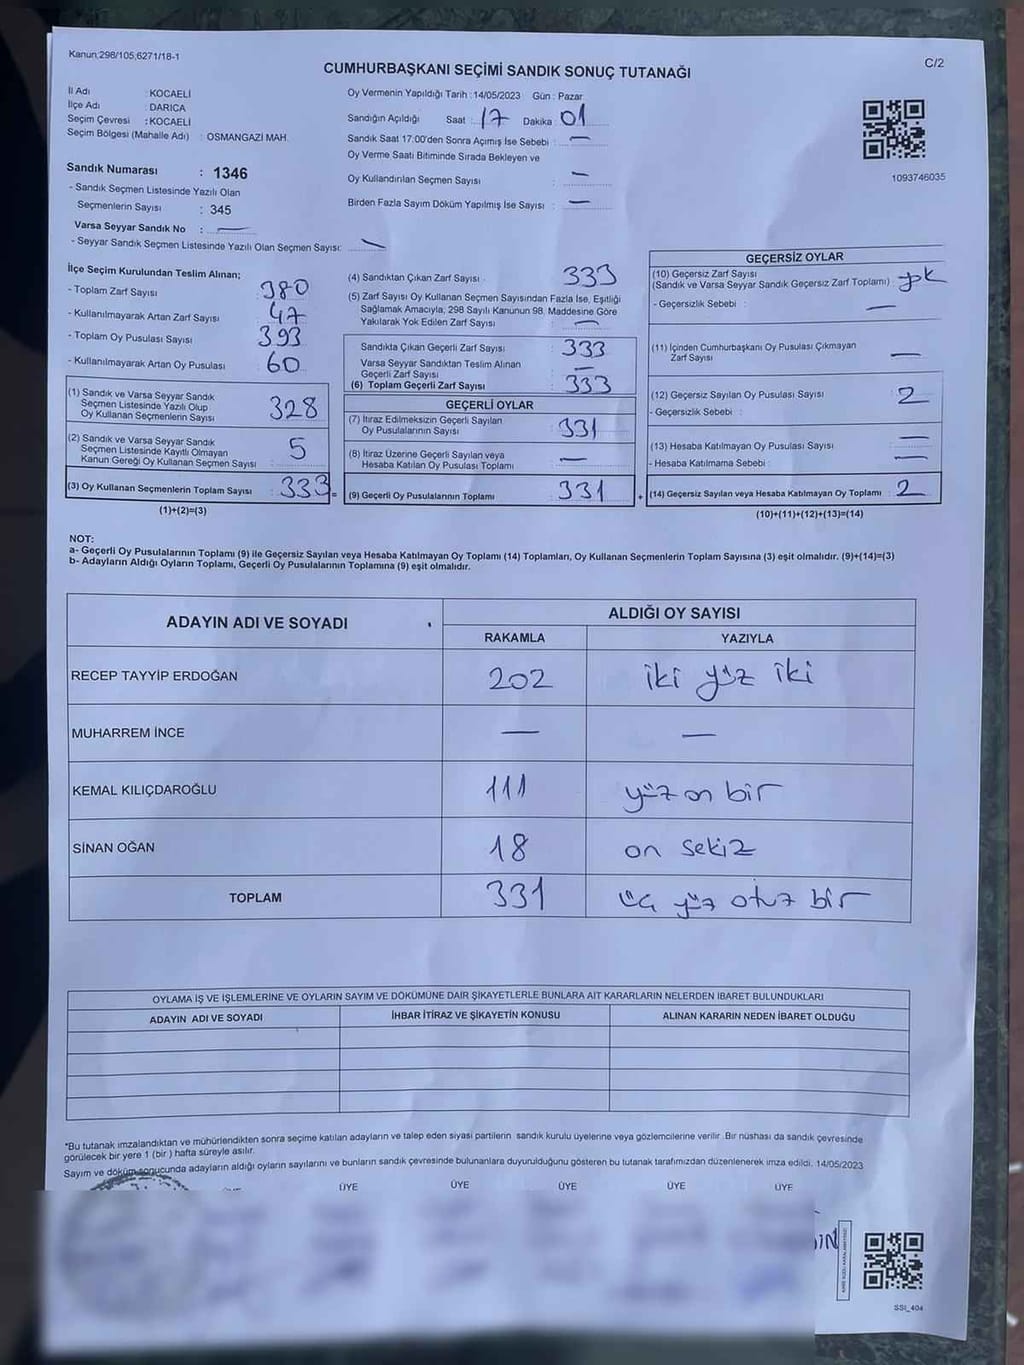 Kanun;298/105;6271/18-1
C/2
CUMHURBAŞKANI SEÇİMİ SANDIK SONUÇ TUTANAĞI
İl Adı : KOCAELİ
İlçe Adı : DARICA
Seçim Çevresi : KOCAELİ
Seçim Bölgesi (Mahalle Adı) : OSMANGAZİ MAH.
Sandık Numarası : 1346
- Sandık Seçmen Listesinde Yazılı Olan
Seçmenlerin Sayısı : 345
Varsa Seyyar Sandık No : —
- Seyyar Sandık Seçmen Listesinde Yazılı Olan Seçmen Sayısı: —
Oy Vermenin Yapıldığı Tarih : 14/05/2023 Gün : Pazar
Sandığın Açıldığı Saat : 17 Dakika : 01
Sandık Saat 17:00'den Sonra Açımış İse Sebebi : —
Oy Verme Saati Bitiminde Sırada Bekleyen ve
Oy Kullandırılan Seçmen Sayısı : —
Birden Fazla Sayım Döküm Yapılmış İse Sayısı : —
1093746035
İlçe Seçim Kurulundan Teslim Alınan;
- Toplam Zarf Sayısı : 380
- Kullanılmayarak Artan Zarf Sayısı : 47
- Toplam Oy Pusulası Sayısı : 393
- Kullanılmayarak Artan Oy Pusulası : 60
(1) Sandık ve Varsa Seyyar Sandık
Seçmen Listesinde Yazılı Olup
Oy Kullanan Seçmenlerin Sayısı : 328
(2) Sandık ve Varsa Seyyar Sandık
Seçmen Listesinde Kayıtlı Olmayan
Kanun Gereği Oy Kullanan Seçmen Sayısı : 5
(3) Oy Kullanan Seçmenlerin Toplam Sayısı : 333 =
(1)+(2)=(3)
(4) Sandıktan Çıkan Zarf Sayısı : 333
(5) Zarf Sayısı Oy Kullanan Seçmen Sayısından Fazla İse, Eşitliği
Sağlamak Amacıyla; 298 Sayılı Kanunun 98. Maddesine Göre
Yakılarak Yok Edilen Zarf Sayısı : —
Sandıkta Çıkan Geçerli Zarf Sayısı : 333
Varsa Seyyar Sandıktan Teslim Alınan
Geçerli Zarf Sayısı : —
(6) Toplam Geçerli Zarf Sayısı : 333
GEÇERLİ OYLAR
(7) İtiraz Edilmeksizin Geçerli Sayılan
Oy Pusulalarının Sayısı : 331
(8) İtiraz Üzerine Geçerli Sayılan veya
Hesaba Katılan Oy Pusulası Toplamı : —
(9) Geçerli Oy Pusulalarının Toplamı : 331 +
GEÇERSİZ OYLAR
(10) Geçersiz Zarf Sayısı
(Sandık ve Varsa Seyyar Sandık Geçersiz Zarf Toplamı) : yok
- Geçersizlik Sebebi : —
(11) İçinden Cumhurbaşkanı Oy Pusulası Çıkmayan
Zarf Sayısı : —
(12) Geçersiz Sayılan Oy Pusulası Sayısı : 2
- Geçersizlik Sebebi :
(13) Hesaba Katılmayan Oy Pusulası Sayısı : —
- Hesaba Katılmama Sebebi : —
(14) Geçersiz Sayılan veya Hesaba Katılmayan Oy Toplamı : 2
(10)+(11)+(12)+(13)=(14)
NOT:
a- Geçerli Oy Pusulalarının Toplamı (9) ile Geçersiz Sayılan veya Hesaba Katılmayan Oy Toplamı (14) Toplamları, Oy Kullanan Seçmenlerin Toplam Sayısına (3) eşit olmalıdır. (9)+(14)=(3)
b- Adayların Aldığı Oyların Toplamı, Geçerli Oy Pusulalarının Toplamına (9) eşit olmalıdır.
ADAYIN ADI VE SOYADI
ALDIĞI OY SAYISI
RAKAMLA YAZIYLA
RECEP TAYYİP ERDOĞAN 202 iki yüz iki
MUHARREM İNCE — —
KEMAL KILIÇDAROĞLU 111 yüz on bir
SİNAN OĞAN 18 on sekiz
TOPLAM 331 üç yüz otuz bir
OYLAMA İŞ VE İŞLEMLERİNE VE OYLARIN SAYIM VE DÖKÜMÜNE DAİR ŞİKAYETLERLE BUNLARA AİT KARARLARIN NELERDEN İBARET BULUNDUKLARI
ADAYIN ADI VE SOYADI İHBAR İTİRAZ VE ŞİKAYETİN KONUSU ALINAN KARARIN NEDEN İBARET OLDUĞU
*Bu tutanak imzalandıktan ve mühürlendikten sonra seçime katılan adayların ve talep eden siyasi partilerin sandık kurulu üyelerine veya gözlemcilerine verilir. Bir nüshası da sandık çevresinde
görülecek bir yere 1 (bir ) hafta süreyle asılır.
Sayım ve döküm sonucunda adayların aldığı oyların sayılarını ve bunların sandık çevresinde bulunanlara duyurulduğunu gösteren bu tutanak tarafımızdan düzenlenerek imza edildi. 14/05/2023
ÜYE ÜYE ÜYE ÜYE ÜYE ÜYE
SSI_404